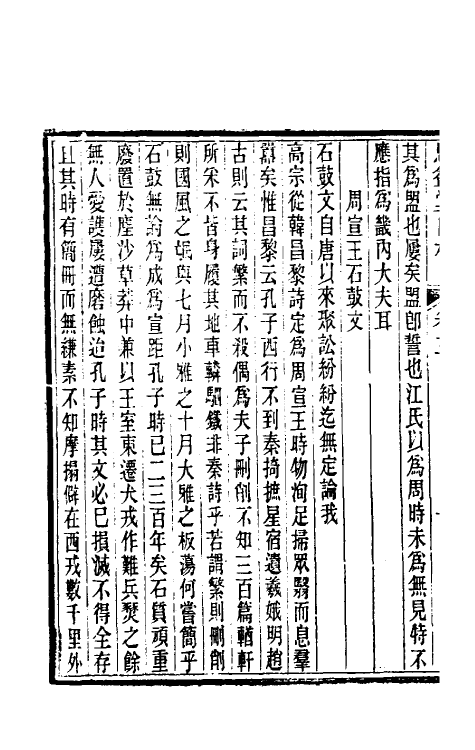 其為盟也屢矣盟卽誓也江氏以為周時未為無見特不
應指為畿內大夫耳
周宣王石鼓文
石鼓文自唐以來聚訟紛紛迄無定論我
高宗從韓昌黎詩定為周宣王時物洵足掃眾翳而息羣
囂矣惟昌黎云孔子西行不到秦掎摭星宿遺羲娥明趙
古則云其詞繁而不殺偶為夫子刪削不知三百篇輶軒
所采不皆身履其地車轔駟鐵非秦詩乎若謂繁則刪削
則國風之氓與七月小雅之十月大雅之板蕩何嘗簡乎
石鼓無論為成為宣距孔子時已二三百年矣石質頑重
廢置於塵沙草莽中兼以王室東遷犬戎作難兵焚之餘
無人愛護屢遭磨蝕迨孔子時其文必已損滅不得全存
且其時有簡冊而無縑素不知摩搨僻在西戎數千里外